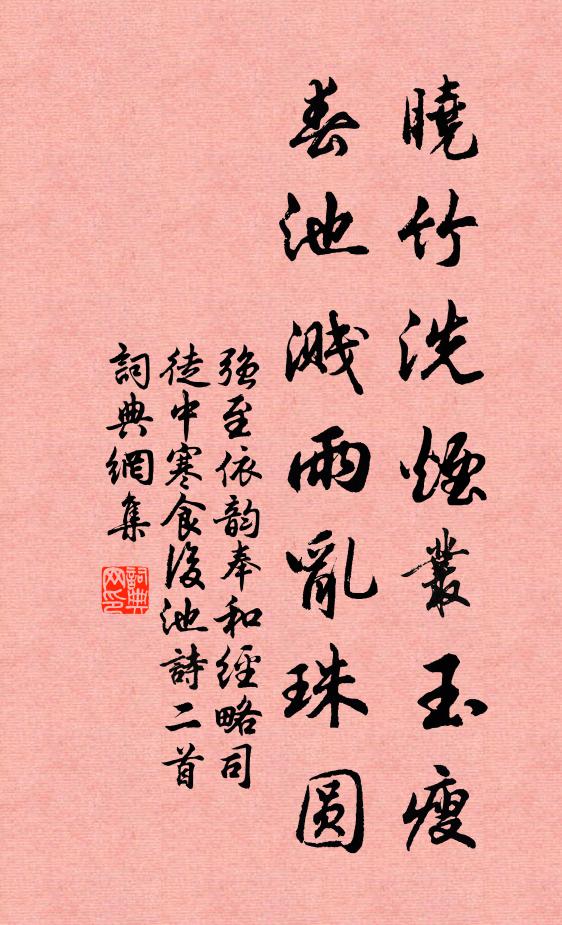 曉竹洗煙叢玉瘦
春池濺雨亂珠圆
强至依韵奉和經略司
徒中寒食後池詩二首
詞典網集
詞典网印